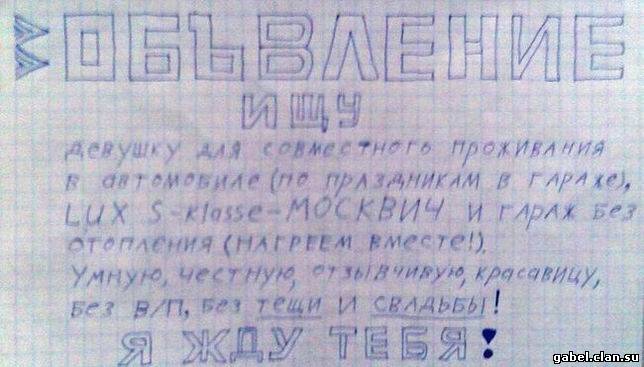 ОБЪВЛЕНИЕ
ИЩУ
девушку для совместного проживания
в автомобиле (по праздникам в гараже),
LUX S-klasse-МОСКВИЧ и гараж без
отопления (нагреем вместе!).
Умную, честную, отзывчивую, красавицу,
без в/п, без тещи и свадьбы!
Я ЖДУ ТЕБЯ!
gabel.clan.su